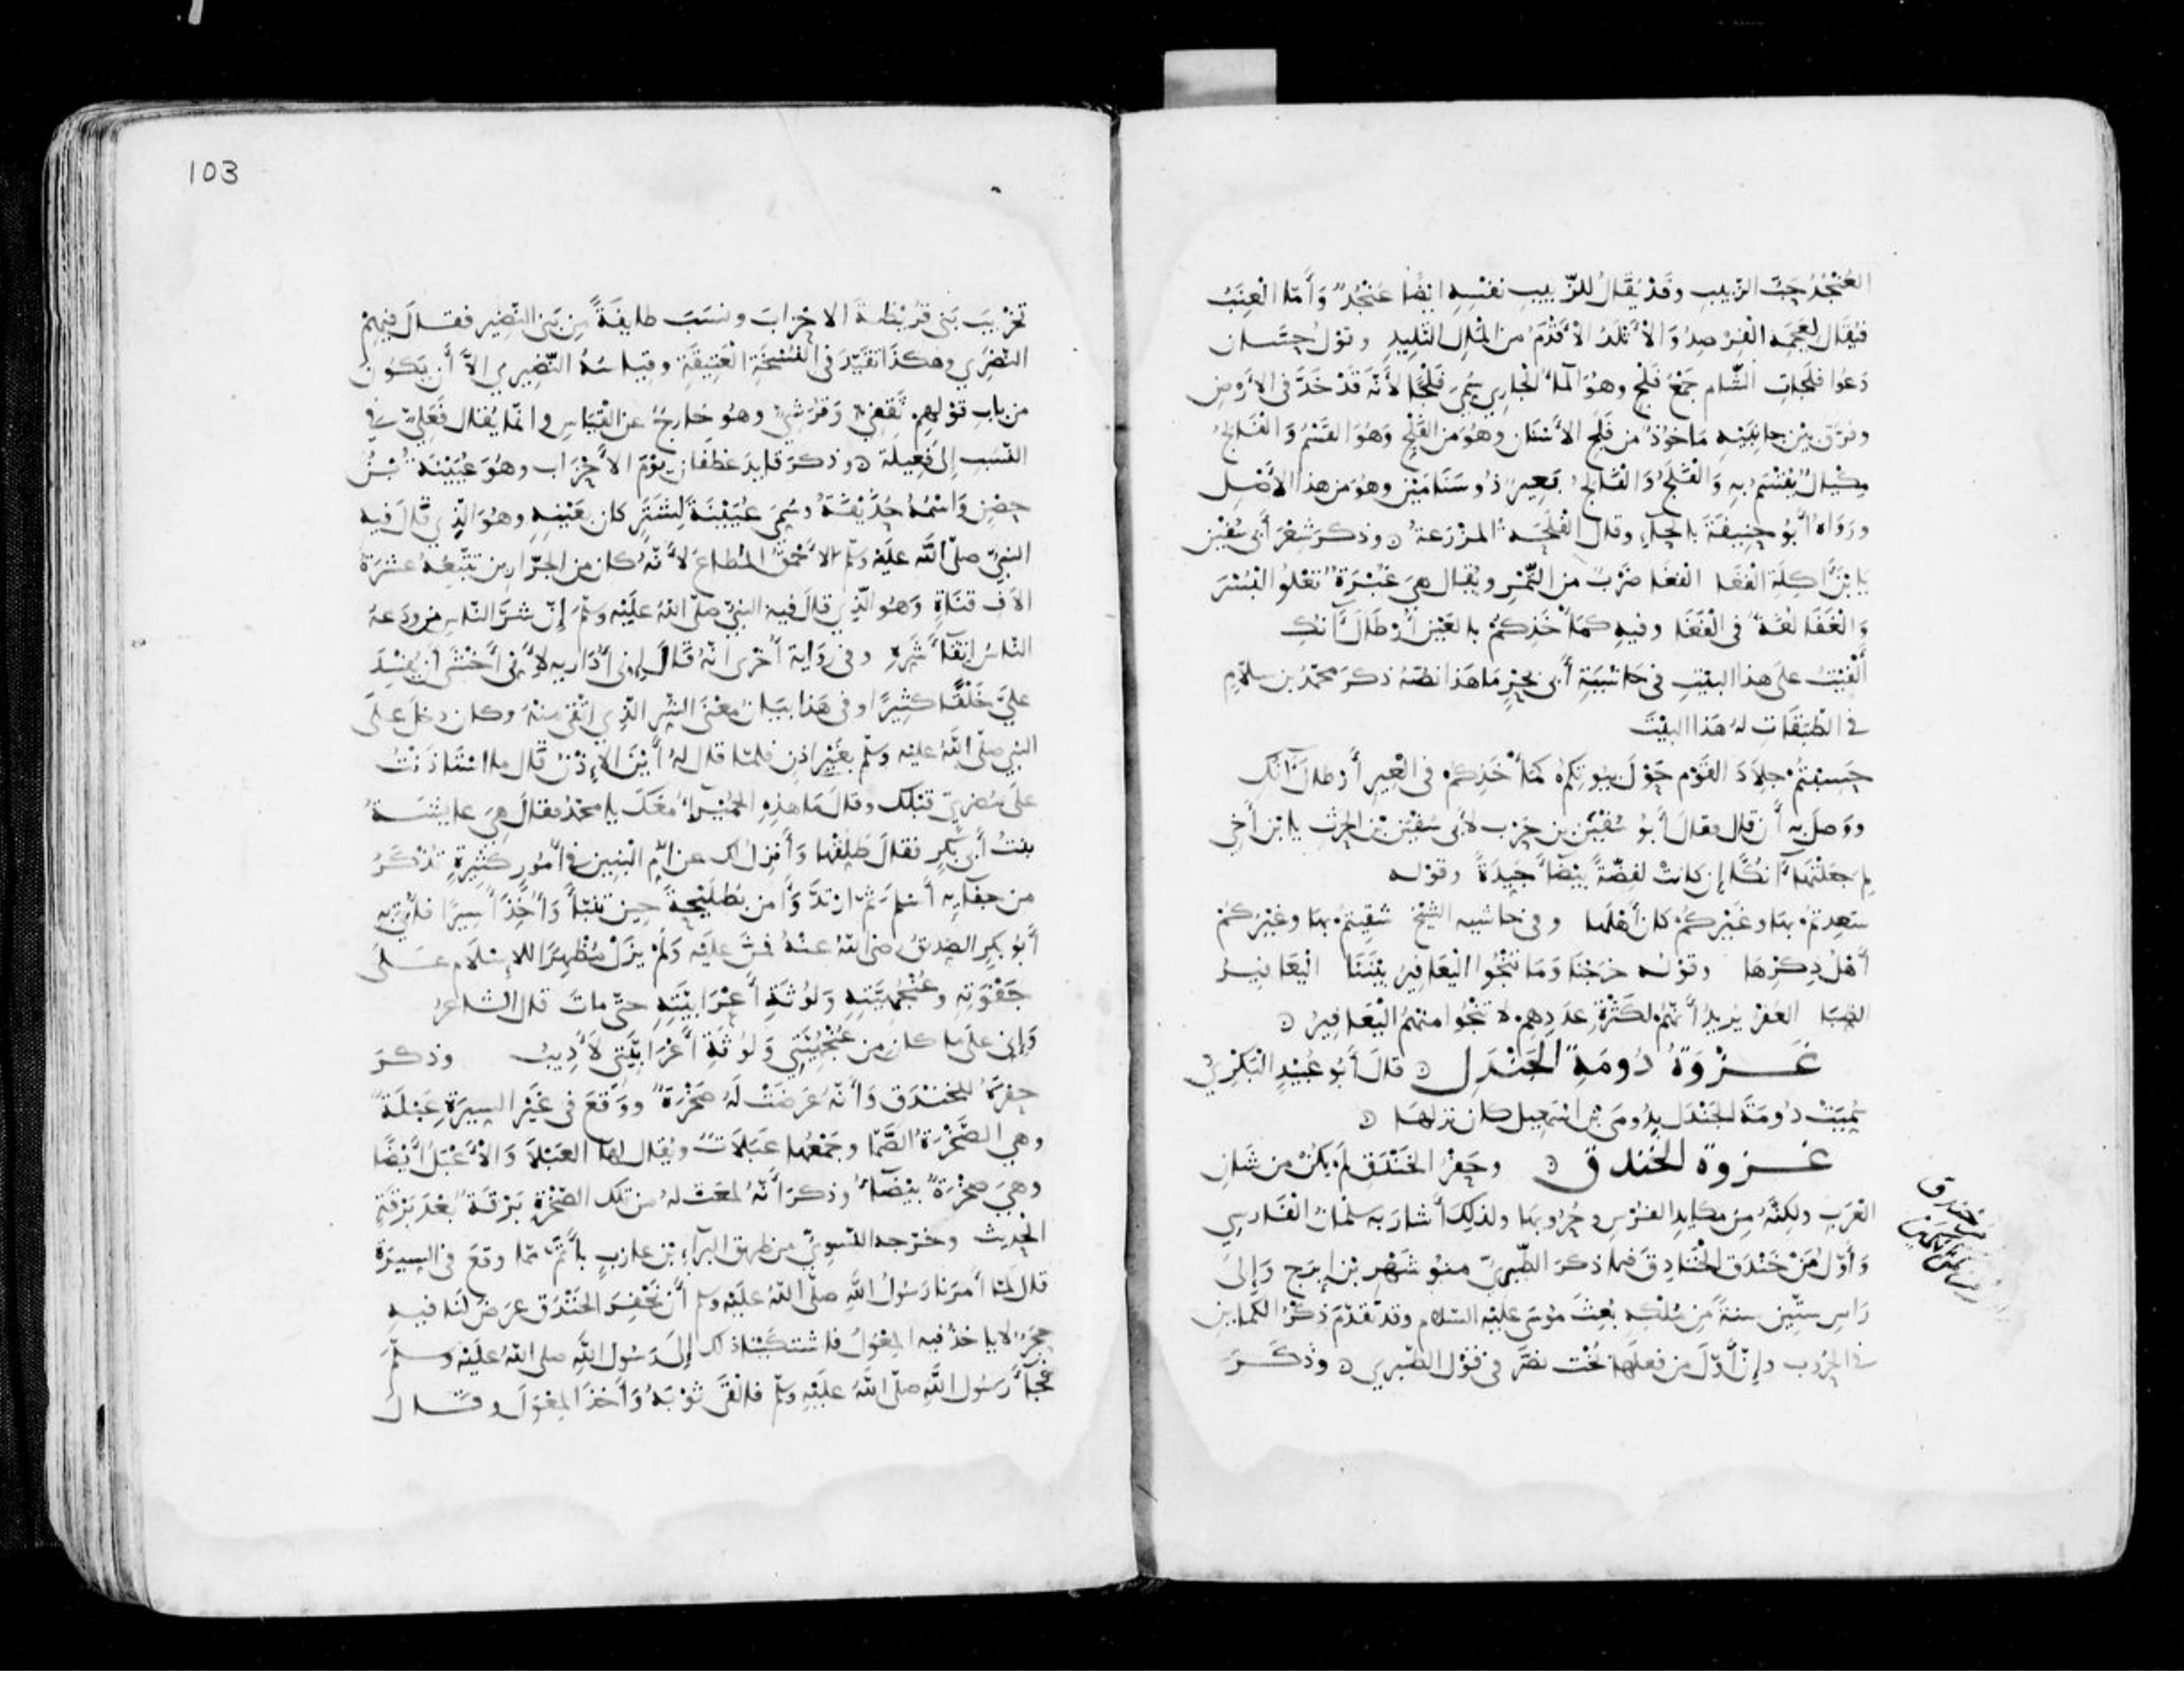 العُنْجُدُ حَبُّ الزّبيبِ وقَدْ يُقَالُ للزّبيبِ نفسِهِ ايضًا عُنْجُدٌ وَأَمّا الْعِنَبُ
فيُقَال لِعَجَمِه الفِرْصِدُ وَالأَتْلَدُ الأَقْدَمُ من المَالِ التّلِيدِ وقوْل حسّان
دَعُوا فلَجَاتِ الشّام جَمْعُ فَلْج وهُوَ المآءُ الجَاري سُمّيَ فَلْجًا لأَنّهُ قَدْ خَدَّ في الأرضِ
وفرّق بيْن جانِبَيْهِ مَاخُوذٌ من فَلَج الأَسْنَان وهُوَ من الفَلْجِ وَهُوَ القَسْمُ وَالفَالِجُ
مِكْيَالٌ يُقْسَمُ بِهِ وَالْفَلْجُ وَالفَالِجُ بَعِيرٌ ذُو سَنَامَيْن وهُوَ من هذا الأَصْل
ورَوَاهُ أَبُو حَنِيفَةَ بالحَآءِ وقال الفَلَحَةُ المزْرَعَةُ ٥ وذكرَ شِعْرَ أَبي سُفْيَن
يَا بْنَ آكِلَةِ الفَغَا الفَغَا ضَرْبٌ من التّمْرِ ويُقال هِيَ غَبْرَةٌ تَعْلُو البُسْرَ
وَالْغَفَا لُغَةٌ في الفَغَا وفيهِ كمَأْخَذِكُمْ بالعَيْن أَرْطَالَ آنُكِ
أَلْفَيْتُ عَلى هذا البيْتِ في حَاشِيَةِ أَبي بحْرٍ مَا هَذا نصّهُ ذكرَ محمّدُ بن سلّامٍ
في الطّبقَاتِ لهُ هَذا البيْتَ
حَسِبْتُمْ جِلَادَ القَوْمِ حَوْلَ بيُوتِكُم كمَأْخَذِكُم في العِيرِ أَرطَالَ آنُك
ووَصلَ به أَن قال فقالَ أَبو سُفْيَن بن حَرْب لأَبي سُفيَن بْن الحرث يا ابْن أَخي
لِمَ جعَلْتَهَا آنُكًا إِن كانتْ لفِضّةً بيْضَآءَ جَيّدَةً وقوْله
سَعِدتُمْ بهَا وغَيْرُكُم كانَ أَهْلَها وفي حَاشيه الشيْخ شَقِيتُمْ بهَا وغَيْرُكُمْ
أَهْلُ ذِكْرِهَا وقوْلُه خرَجْنَا وَمَا تَنْجُوا اليَعَافِيرُ بيْنَنَا اليَعَافيرُ
الظِّبَا العُفْرُ يُرِيدُ أَنّهُم لكَثْرَةِ عدَدِهِم لا تَنْجُوا منهُم اليَعَافِيرُ ٥
غَزْوَةُ دُومَةِ الجَنْدَلِ ٥ قالَ أَبُو عُبَيْدٍ البَكْرِيُّ
سُمّيَتْ دُومَةَ الجَنْدَل بِدُومَى بْن اسْمَعِيل كان نزلهَا ٥
غزوة الخندق ٥ وحَفْرُ الخَنْدَقِ لَمْ يَكُنْ من شَانِ
العَرَبِ ولكِنّهُ مِن مكَايِدِ الفُرْسِ وحُرُوبهَا ولذلكَ أَشارَ به سَلْمَانُ الفَارسِي
وَأَوّلُ مَنْ خَنْدَقَ الخَنَادِقَ فيمَا ذكرَ الطّبَرِيّ منُوشَهْر بن ايرج وَإِلى
رَاسِ ستّين سنةً مِن مُلْكهِ بُعِثَ مُوسَى عليْهِ السّلام وقد تقدّمَ ذِكْرُ الكمَاين
في الحُرُوبِ وإِنّ أَوّلَ من فعلَهَا بُخْت نصَّر في قوْل الطّبري ٥ وذَكَرَ
103
تحْزِيبَ بَني قُرَيْظَةَ الاحْزابَ ونسَبَ طايفَةً مِن بَني النّضِيرِ فقال فيهِمْ
النّضَرِي وهكذَا تَقَيّدَ في النُّسْخَةِ العَتِيقَةِ وقياسُهُ النّضِيرِي الاّ أَن يَكُونَ
من بابِ قوْلهِم ثَقَفِيّ وَقُرَشِيّ وهُوَ خَارِجٌ عن القِيَاسِ وانّمَا يُقال فَعَلِيّ في
النّسَبِ إِلى فَعِيلَة ٥ وذكرَ قايدَ غطَفَان يَوْمَ الأَحْزَاب وهُوَ عُيَيْنَةُ بْنُ
حِصْنٍ وَاسْمُهُ حُذَيْفَةُ وسُمّيَ عُيَيْنَةَ لِشَتَرٍ كان بعَيْنِهِ وهُوَ الّذِي قال فيهِ
النبيّ صلّى اللّهُ عليْه وسلّم الأَحْمَقُ المُطاعُ لأَنّهُ كانَ من الجرّارِين تَتْبَعُهُ عشَرَةُ
الافِ قنَاةٍ وَهُوَ الّذي قال فيه النبيّ صلّى اللهُ علَيْه وسلّم إِنّ شرَّ النّاسِ من ودَعهُ
النّاسُ اتّقَآءَ شَرِّهِ وفي رِوَايةٍ أُخْرى أَنّهُ قَالَ إِنّي أُدَاريه لأَنّي أَخْشَى أَن يُفْسِدَ
عليَّ خَلْقًا كثِيرًا وفي هَذا بيَانُ معْنَى الشّرِ الّذي اتّقِي منهُ وكان دخلَ على
النبي صلّى اللّهُ عليه وسلّم بغَيْرِ اذنٍ فلمّا قال لهُ أَيْنَ الإِذْنُ قَال ما اسْتَاذَنْتُ
علَى مُضَرِيّ قبْلك وقالَ مَا هَذِه الحُمَيْرَآءُ معَكَ يا محمدُ فقالَ هِيَ عايشَةُ
بنتُ أَبي بَكْرٍ فقَالَ طَلِّقْهَا وَأَنزِلُ لك عن أُمّ البَنين في أُمُورٍ كثِيرَةٍ تُذْكَرُ
من جفَآيِه أَسْلَم ثمّ ارْتَدَّ وَآمَن بطُلَيْحَةَ حِين تَنَبّأَ وَأُخِذَ أَسِيرًا فأُتِيَ بِهِ
أَبُو بكرٍ الصّديقُ رضي اللهُ عنهُ فمَنَّ علَيْه وَلَمْ يزَلْ مُظْهِرًا للإِسْلَام عَلَى
جَفْوَتِهِ وعُنْجُهِيَّتِهِ وَلُوثَةِ أَعْرَابيّتِهِ حتّى ماتَ قال الشاعرُ
وَإِنّي عَلى ما كان من عُنْجُهِيّتِي وَلُوثَةِ أَعْرَابيَّتي لَأَدِيبُ وذكرَ
حفْرَهُ للخندَقِ وَأَنّهُ عَرَضَتْ لَهُ صَخْرَةٌ ووَقَعَ في غَيْرِ السيرَةِ عَبْلَةٌ
وهي الصّخْرَةُ الصّمّا وجَمْعُها عَبَلاتٌ ويُقال لها العَبْلَآ وَالأَعْبَلُ أَيْضًا
وهيَ صخْرَةٌ بيْضَآءُ وذكرَ أَنّهُ لمعَت لهُ من تلك الصّخْرَةِ بَرْقَةٌ بَعْدَ بَرْقَةٍ
الحديث وخرّجه النّسَوِيّ من طريق البرآءِ بْن عازبٍ بأَتَمّ ممّا وقعَ في السِيرَةِ
قال لمّا أَمرَنا رَسُولُ اللَّهِ صلّى اللّهُ عَليْه وسلم أَن نَحْفِرَ الخَنْدَق عرَضَ لنا فيه
حجَرٌ لا ياخذُ فيه المِعْوَلُ فاشتكَيْنا ذلك إِلى رَسُولِ اللّهِ صلى اللهُ علَيْه وسلّم
فجَآءَ رَسُولُ اللَّهِ صلّى اللَّهُ علَيْهِ وسلّم فأَلْقَى ثَوْبَهُ وَأَخذَ المِعْوَلَ وقال